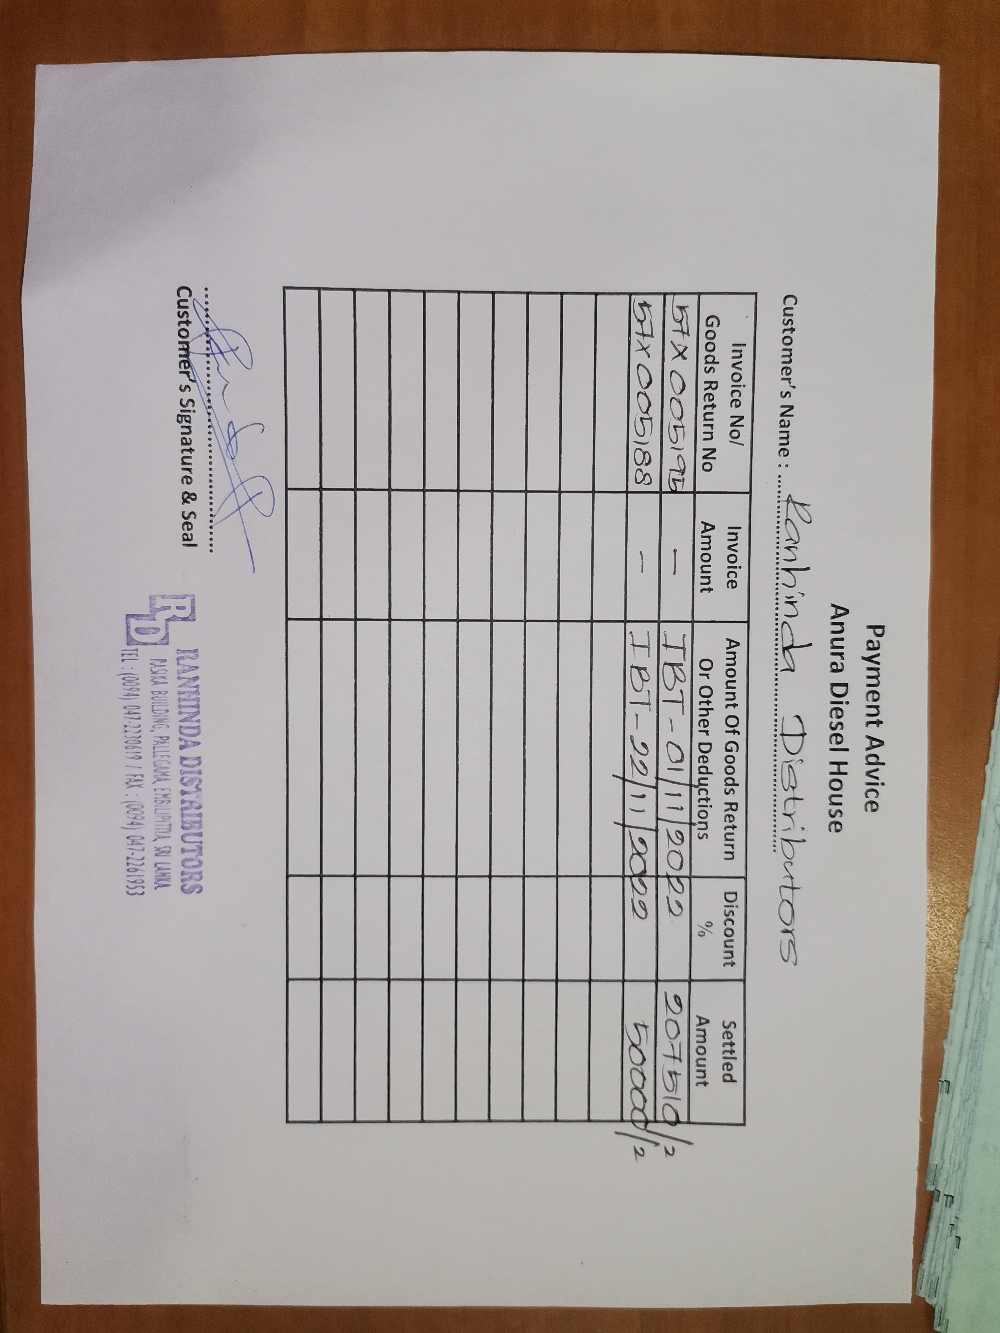 Payment Advice
Anura Diesel House
Customer's Name : Ranhinda Distributors
Invoice No/ Goods Return No | Invoice Amount | Amount Of Goods Return Or Other Deductions | Discount % | Settled Amount
57X005195 | — | IBT-01/11/2022 | | 207510/2
57X005188 | — | IBT-22/11/2022 | | 50000/2
Customer's Signature & Seal
RD
RANHINDA DISTRIBUTORS
PASIKA BUILDING, PALLEGAMA, EMBILIPITIYA, SRI LANKA
TEL : (0094) 047-2230619 / FAX : (0094) 047-2261953